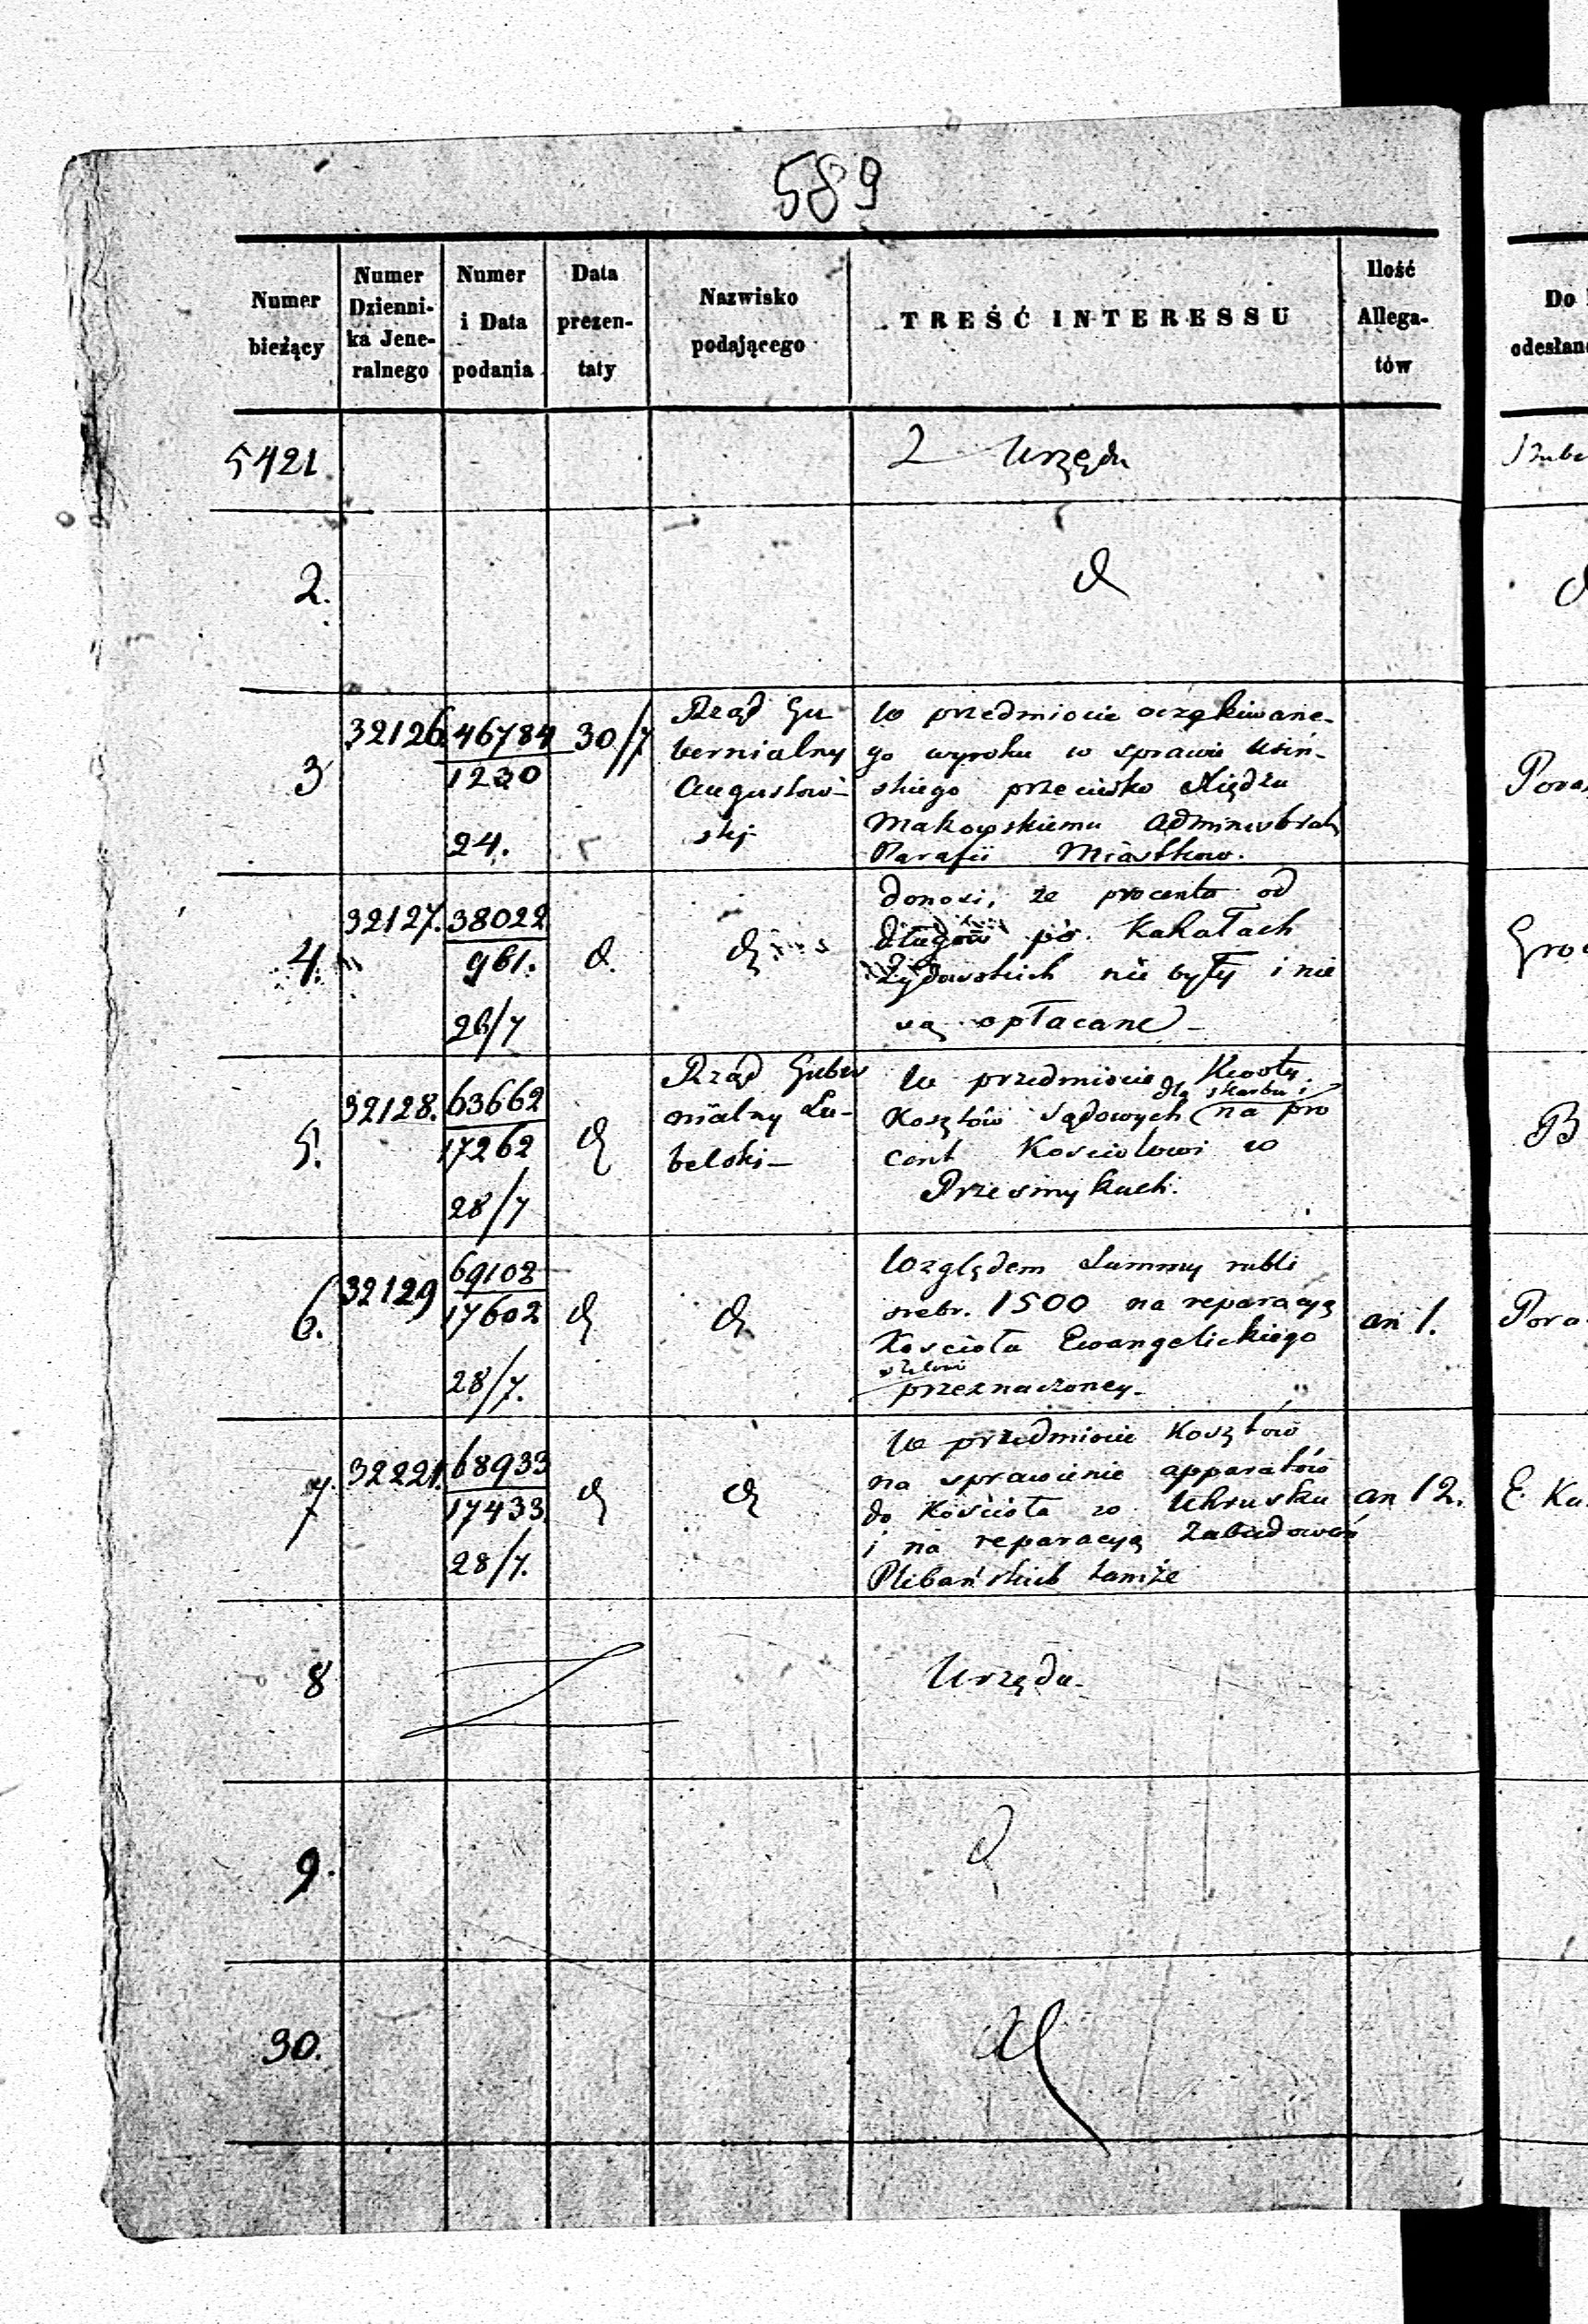 589
Numer bieżący
Numer Dzienni-ka Jene-ralnego
Numer i Data podania
Data prezen-taty
Nazwisko podającego
TREŚĆ INTERESSU
Ilość Allega-tów
Do
odesłan
5421
Z Urzędu
2.
d
3
32126
46784
1230
24.
30/7
Rząd Gu
bernialny
Augustow-
ski
W przedmiocie oczekiwane-
go wyroku w sprawie
skiego przeciwko Xiędzu
Makowskiemu Administrat
Parafii Miastkow.
4.
32127.
38022
961.
26/7
d.
d
donosi, że procenta od
długów po Kahałach
Żydowskich nie były i nie
są opłacane -
5.
32128.
63662
17262
28/7
d
Rząd Guber
nialny Lu-
belski -
W przedmiocie Kwoty
dla skarbu i
Kosztów Sądowych na pro
cent Kosciołowi w
Przesmykach.
B
6.
32129
69102
17602
28/7.
d
d
Względem Summy rubli
srebr. 1500 na reparacyą
Kościoła Ewangelickiego
przeznaczoney.
an 1.
7
32221.
68933
17433
28/7.
d
d
W przedmiocie Kosztów
na sprawienie apparatów
do Kościoła w Uhrusku
i na reparacyą Zabudowań
Plebańskich tamże
an 12.
E. Ka
8
Urzędu.
9.
d
30.
d